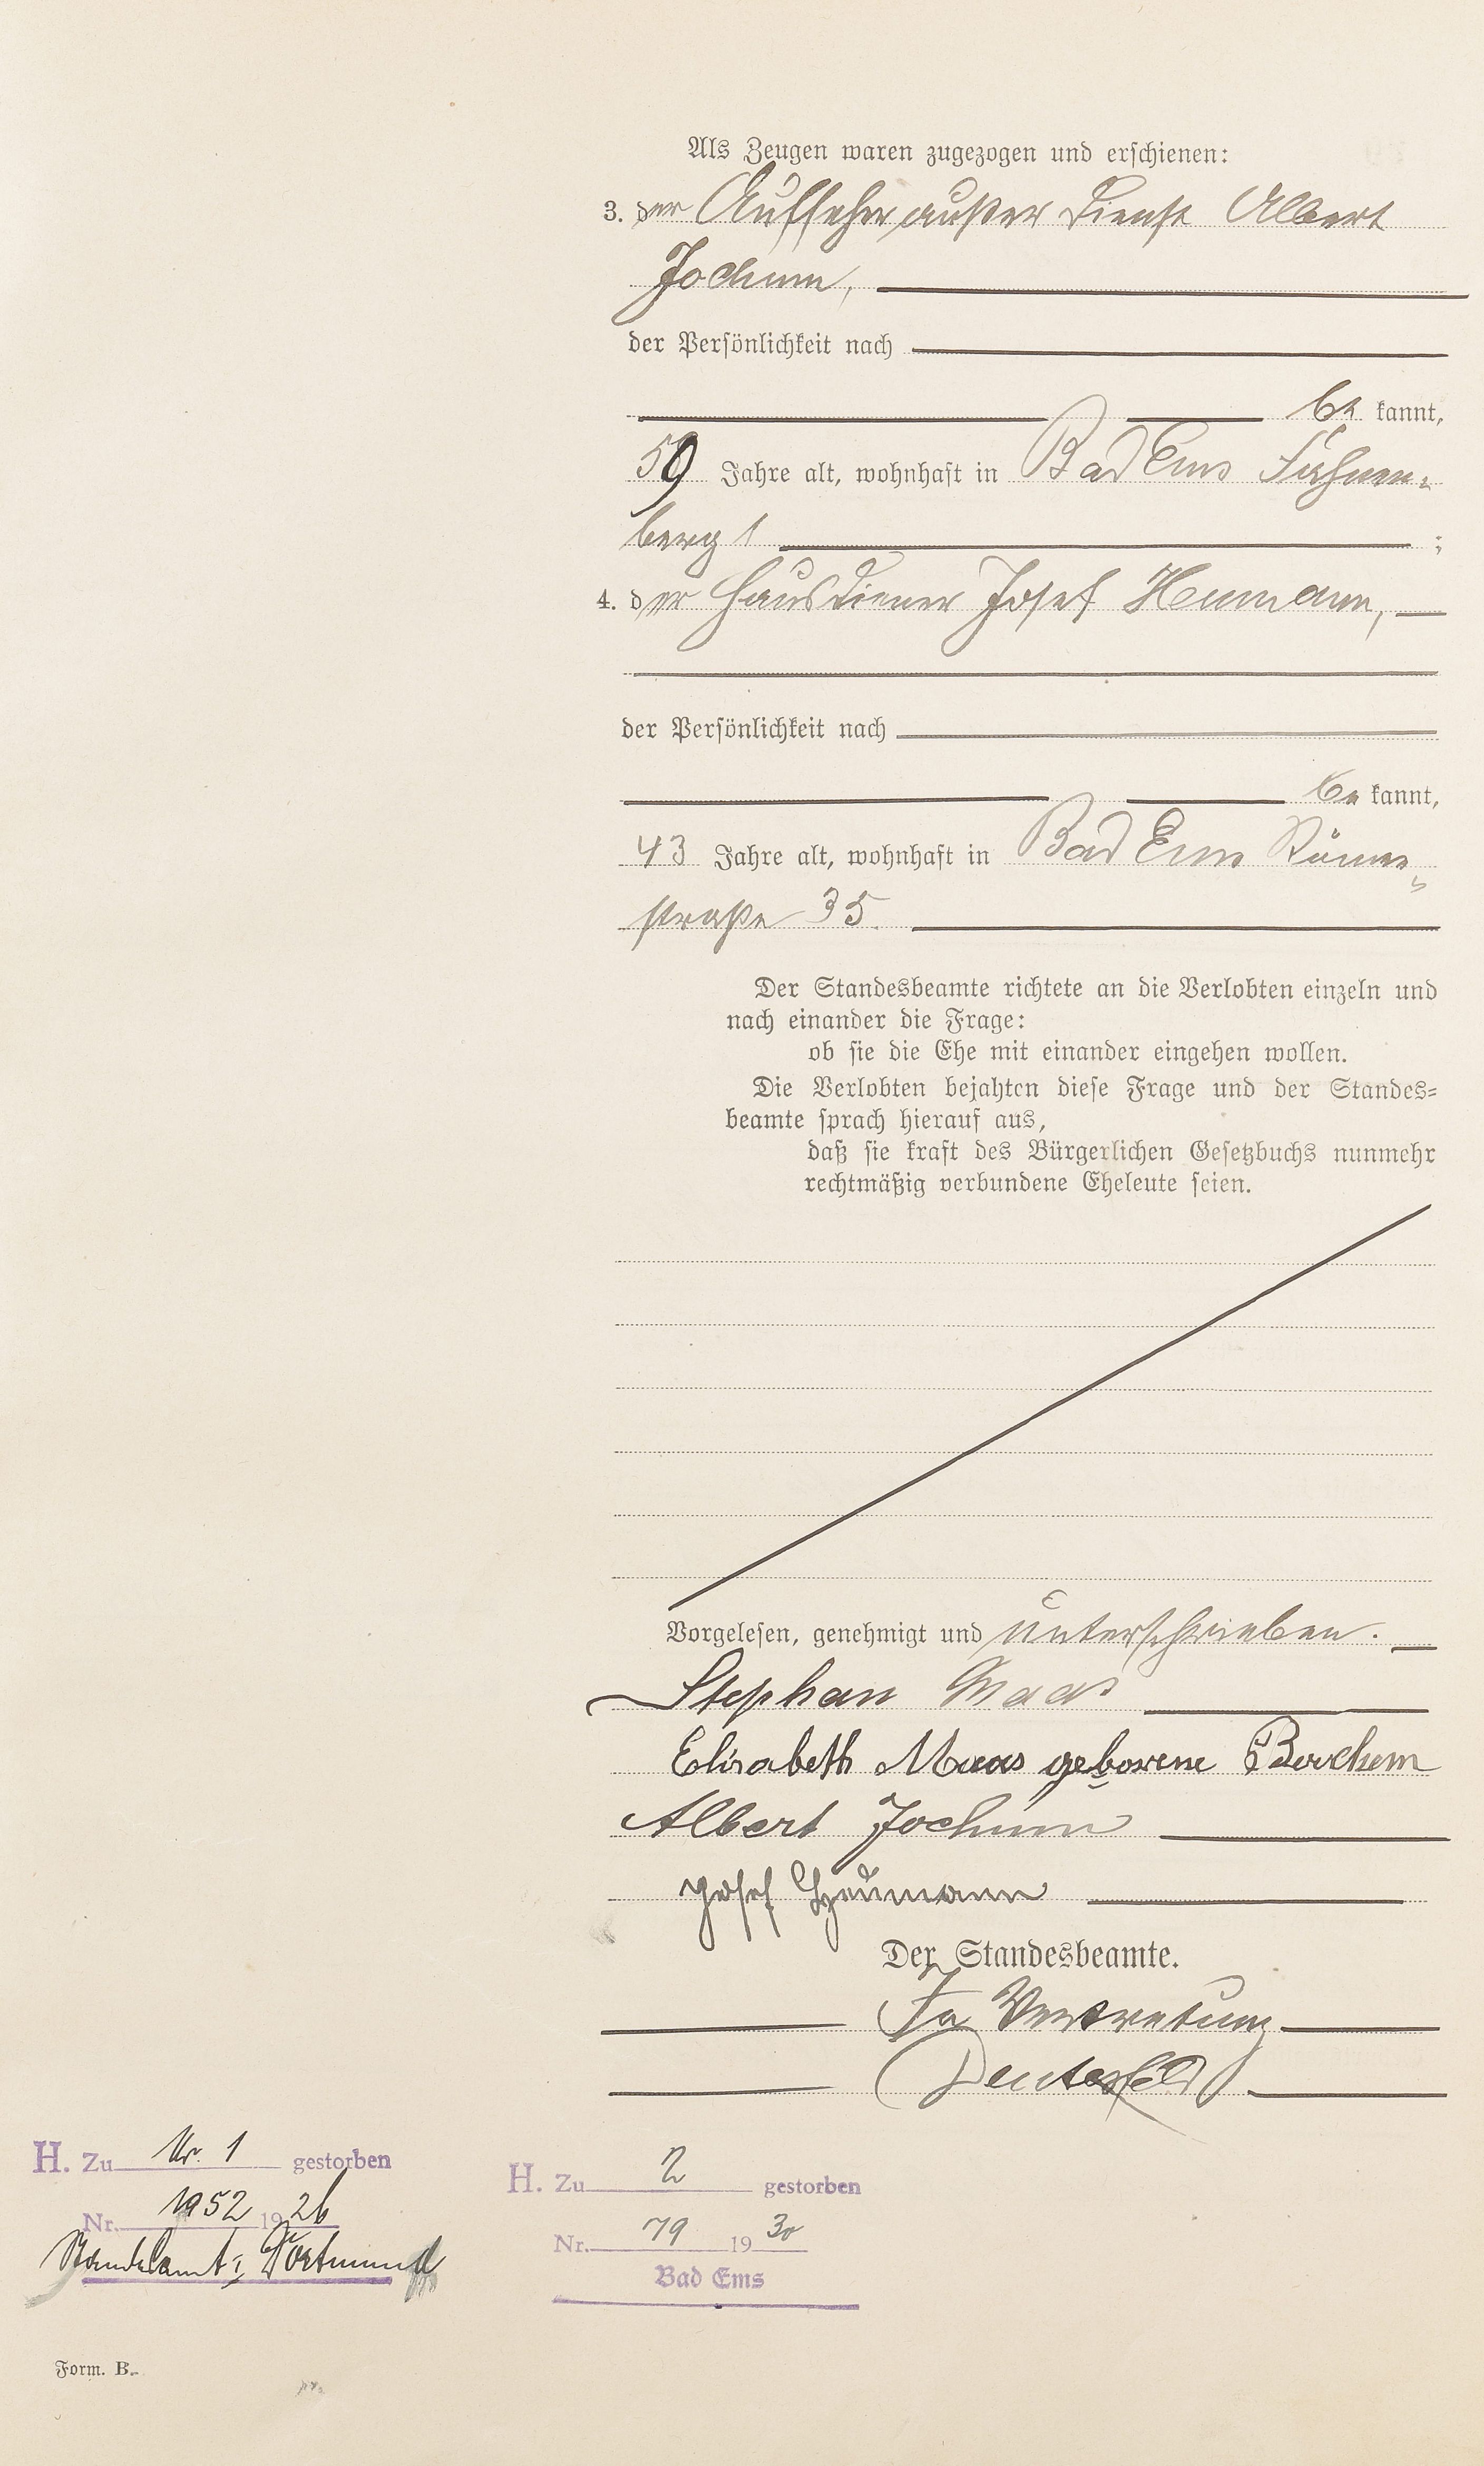 Als Zeugen waren zugezogen und erschienen:
3. der Aufseher außer Dienst Albert
Jochum,
der Persönlichkeit nach
be kannt,
59 Jahre alt, wohnhaft in Bad Ems
berg 1 ;
4. der Hausdiener Josef Heumann,
der Persönlichkeit nach
be kannt,
43 Jahre alt, wohnhaft in Bad Ems Römer-
straße 35.
Der Standesbeamte richtete an die Verlobten einzeln und
nach einander die Frage:
ob sie die Ehe mit einander eingehen wollen.
Die Verlobten bejahten diese Frage und der Standes-
beamte sprach hierauf aus,
daß sie kraft des Bürgerlichen Gesetzbuchs nunmehr
rechtmäßig verbundene Eheleute seien.
Vorgelesen, genehmigt und unterschrieben.
Stephan Maas
Elisabeth Maas geborene
Albert Jochum
Josef Heumann
Der Standesbeamte.
In Vertretung
H. Zu Nr. 1 gestorben
Nr. 1952 1926
Standesamt I Dortmund
H. Zu 2 gestorben
Nr. 79 1930
Bad Ems
Form. B.